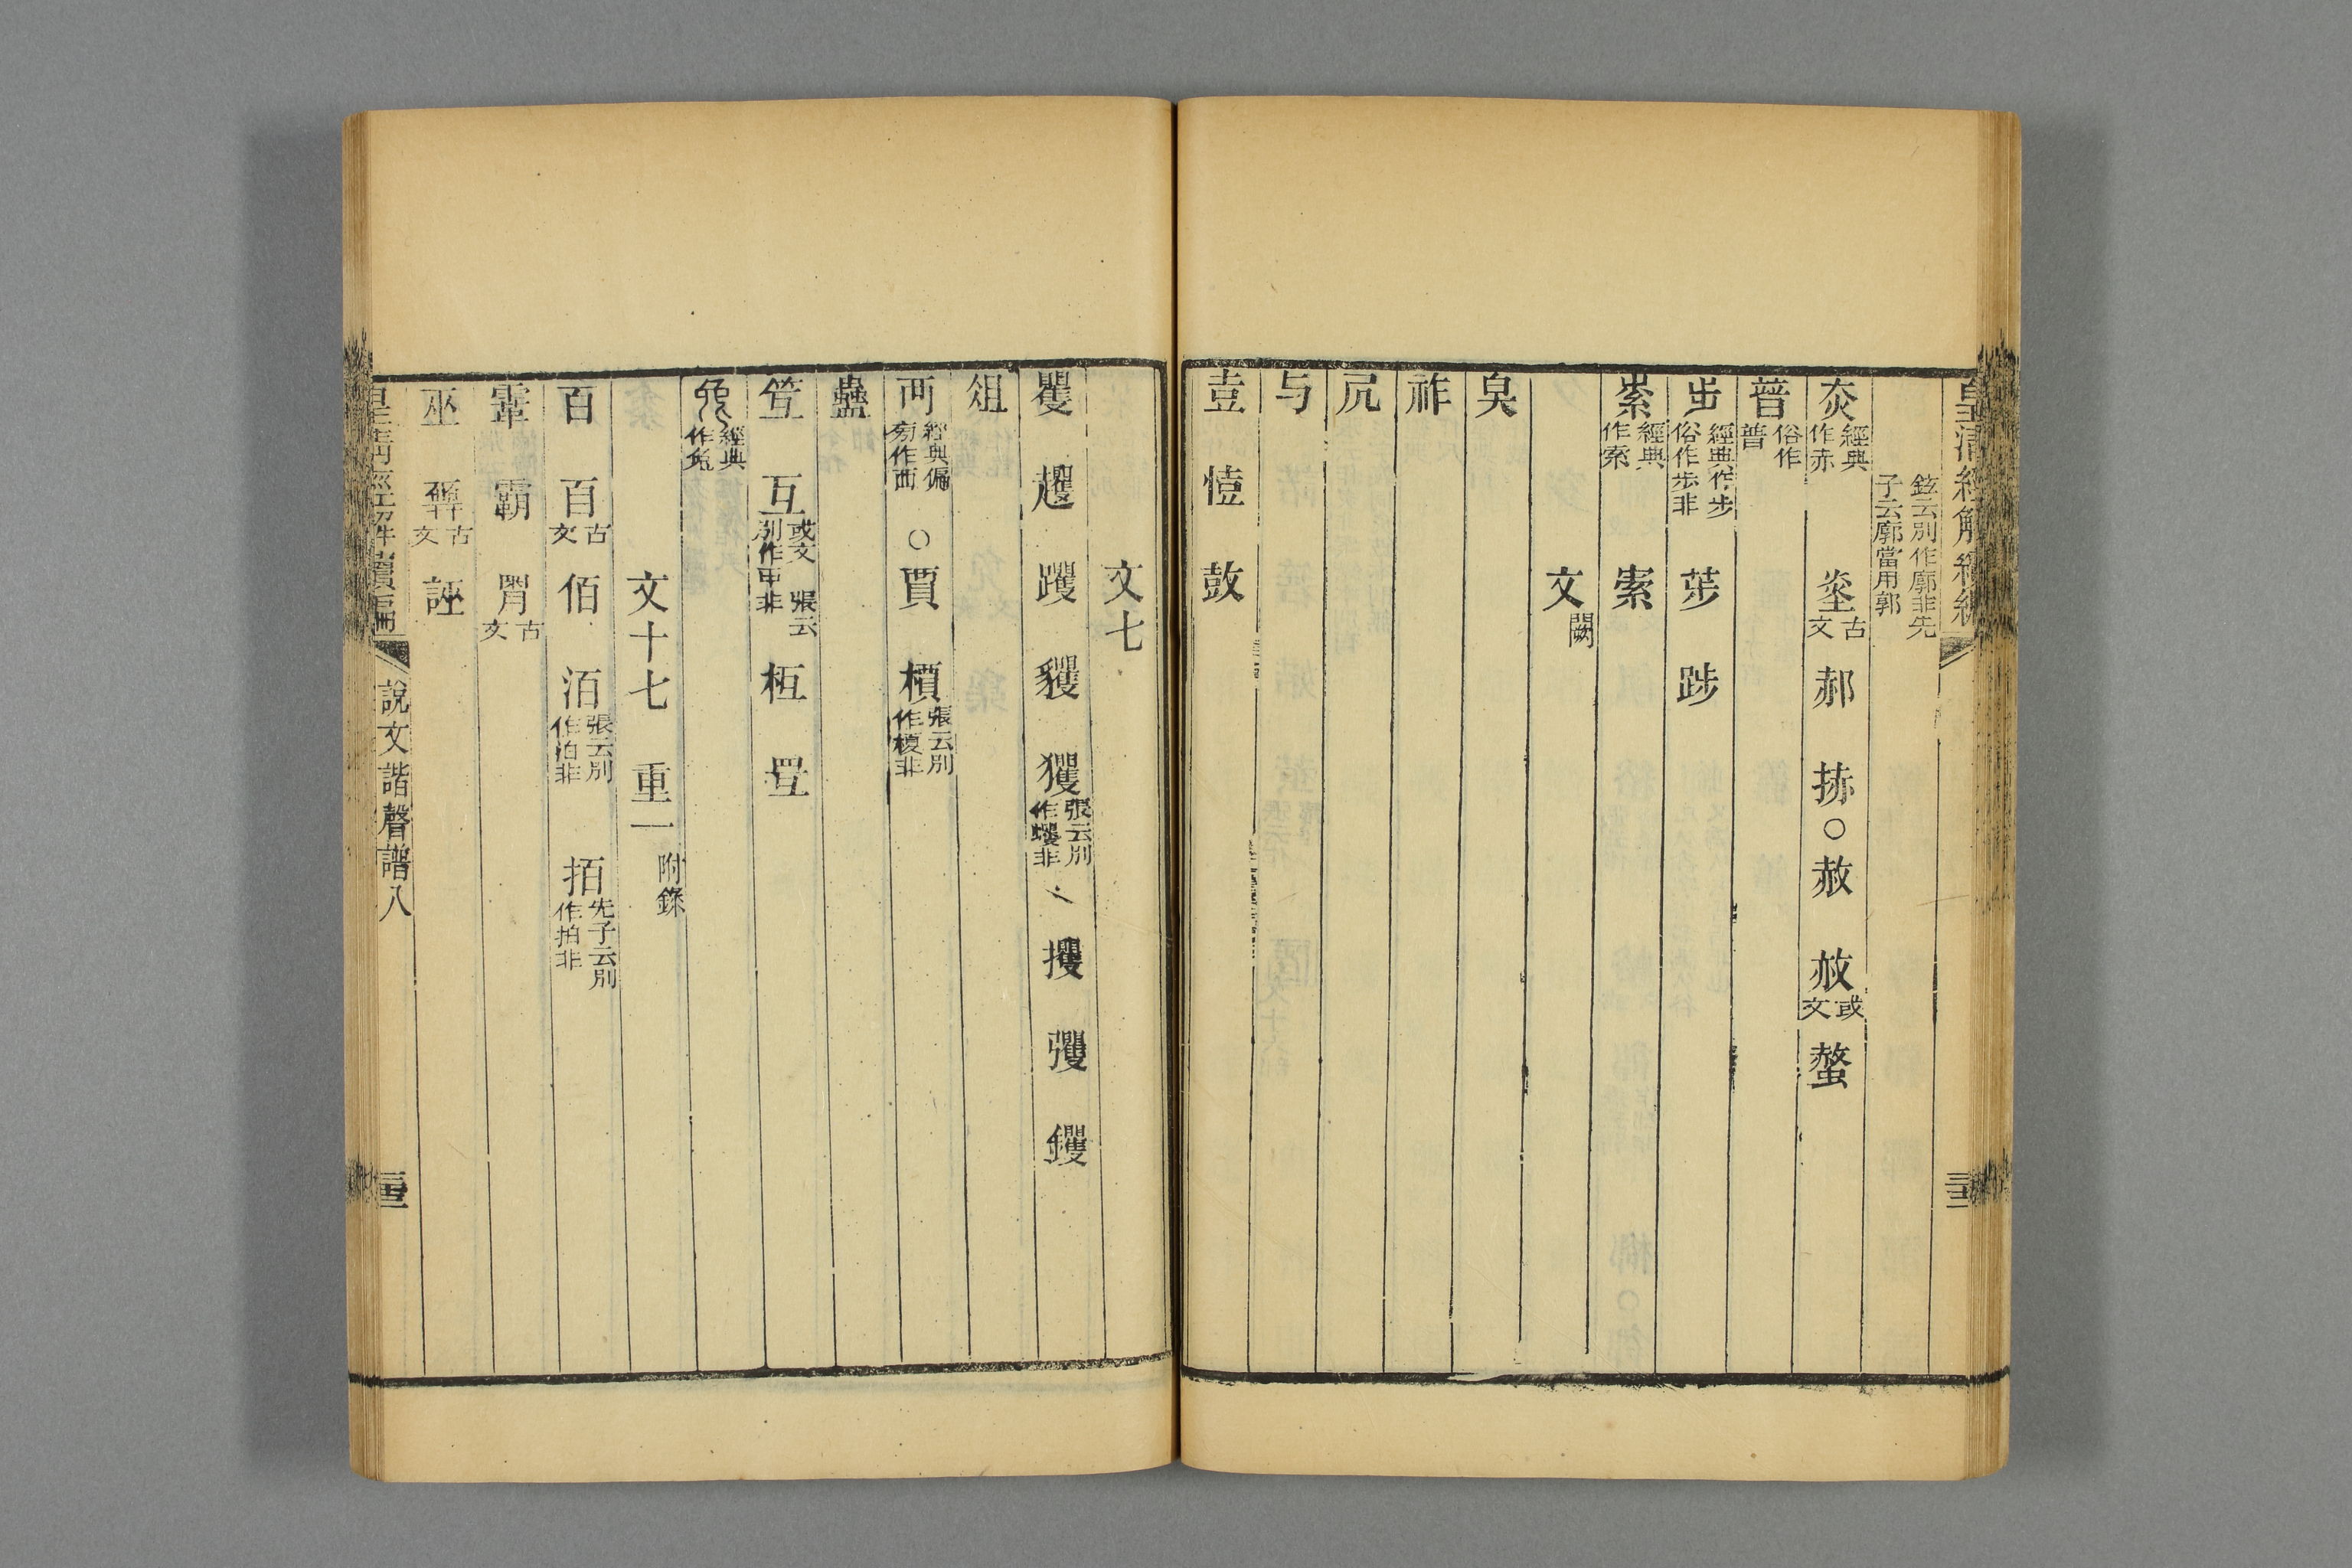 鉉云別作廓非先子云廓當用郭
灻經典作赤 烾古文 郝 捇○赦 㪁或文 螫
普俗作普
步經典作步俗作歩非 荹 踄
索經典作索 索
文闕
臭
祚
尻
与
壴 𢠵 鼔
文七
矍 趯 躩 貜 玃張云別作蠼非 攫 彏 钁
俎
襾經典偏旁作西 ○賈 檟張云別作榎非
蠱
笠 互或文 張云別作㸦非 枑 罝
兔經典作兔
文十七 重一附錄
百 百古文 佰 洦張云別作泊非 拍先子云別作拍非
䨣 霸 古文
巫 古文 誣
皇清經解續編
說文諧聲譜八